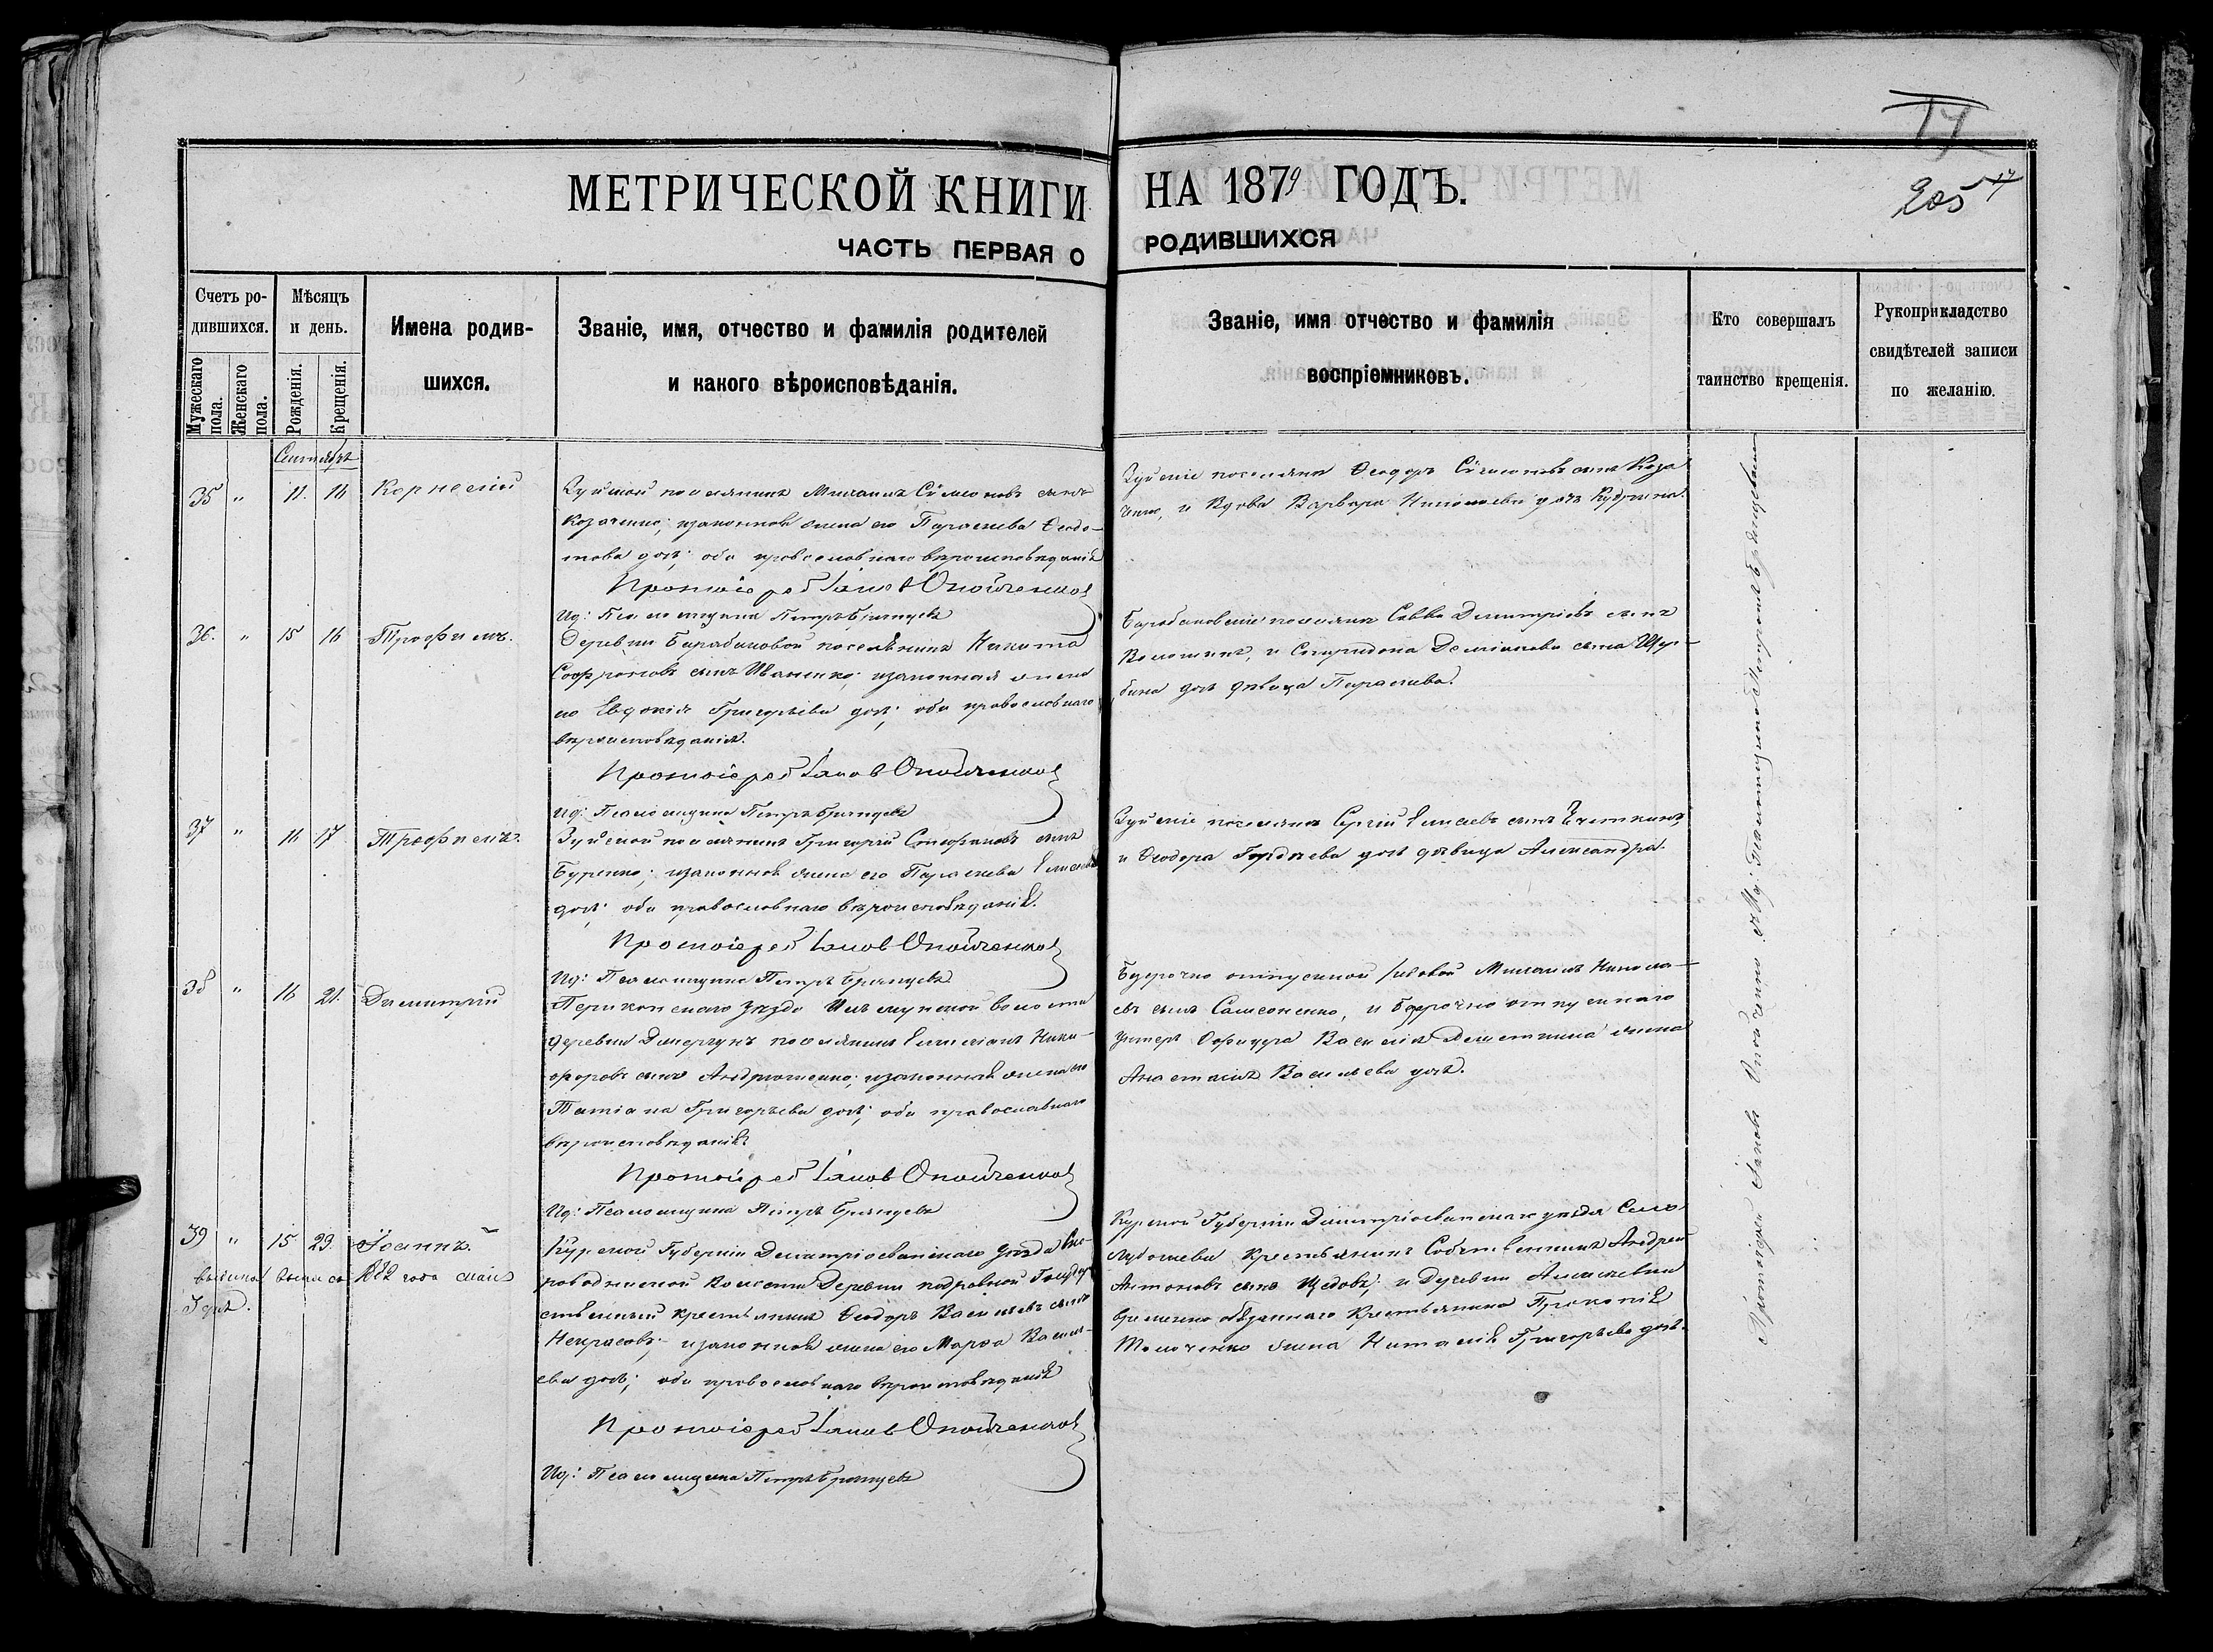 17
205 17
МЕТРИЧЕСКОЙ КНИГИ НА 1879 ГОДЪ.
ЧАСТЬ ПЕРВАЯ О РОДИВШИХСЯ
Счетъ ро-
дившихся.
Мужескаго
пола.
Женскаго
пола.
Мѣсяцъ
и день.
Рожденія.
Крещенія.
Имена родив-
шихся.
Званіе, имя, отчество и фамилія родителей
и какого вѣроисповѣданія.
Званіе, имя отчество и фамилія
воспріемниковъ.
Кто совершалъ
таинство крещенія.
Рукоприкладство
свидѣтелей записи
по желанію.
Сентябрь
35 " 11. 16 Корнелій
Зуйской поселянинъ Михаилъ Сѵмеоновъ сынъ
Козаченко; и законная жена его Параскева Ѳеодо-
това дочь; оба православнаго вѣроисповѣданія
Протоіерей Іаковъ Опойченковъ
Ид: Псаломщика Петръ Брянцевъ
Зуйскіе поселяне Ѳеодоръ Сѵмеоновъ сынъ Коза
ченко, и Вдова Варвара Николаева дочь
36. " 15 16 Трофимъ.
Деревни Барабановой поселянинъ Никита
Софроновъ сынъ Иваненко; и законная жена
его Евдокія Григорьева дочь; оба православнаго
вѣроисповѣданія.
Протоіерей Іаковъ Опойченковъ
Ид: Псаломщика Петръ Брянцевъ
Барабановскіе поселяне Савва Димитріевъ сынъ
Волошинъ, и Спиридона Даміанова сына Щер-
бина дочь дѣвица Параскева.
37 " 16 17. Трофимъ.
Зуйской поселянинъ Григорій Стефановъ сынъ
Буренко; и законная жена его Параскева
дочь; оба православнаго вѣроисповѣданія.
Протоіерей Іаковъ Опойченковъ
Ид: Псаломщика Петръ Брянцевъ
Зуйскіе поселяне Сергій сынъ
и Ѳеодора Гордѣева дочь дѣвица Александра.
38 " 16 21. Димитрій
Перекопскаго Уѣзда волости
деревни поселянинъ Емиліанъ Ники-
форовъ сынъ Андрющенко; и законная жена его
Татіана Григорьева дочь; оба православнаго
вѣроисповѣданія
Протоіерей Іаковъ Опойченковъ
Ид: Псаломщика Петръ Брянцевъ
Безсрочно отпускной рядовой Михаилъ Никола-
евъ сынъ Самсоненко, и безсрочно отпускнаго
унтеръ Офицера Василія жена
Анастасія Васильева дочь.
39 " 15. 29. Іоаннъ.
года
Курской Губерніи Димитріевскаго Уѣзда
Волости Деревни Государ
ственный крестьянинъ Ѳеодоръ Васильевъ сынъ
Некрасовъ; и законная жена его Марѳа Василь-
ева дочь; оба православнаго вѣроисповѣданія
Протоіерей Іаковъ Опойченковъ
Ид: Псаломщика Петръ Брянцевъ
Курской Губерніи Димитріевскаго уѣзда Села
Крестьянинъ Собственникъ Андрей
Антоновъ сынъ и Деревни Алексѣевки
временно обязаннаго Крестьянина Прокопія
жена Наталія Григорьева дочь.
Протоіерей Іаковъ Опойченко съ Ид: Псаломщика Петромъ Брянцевымъ